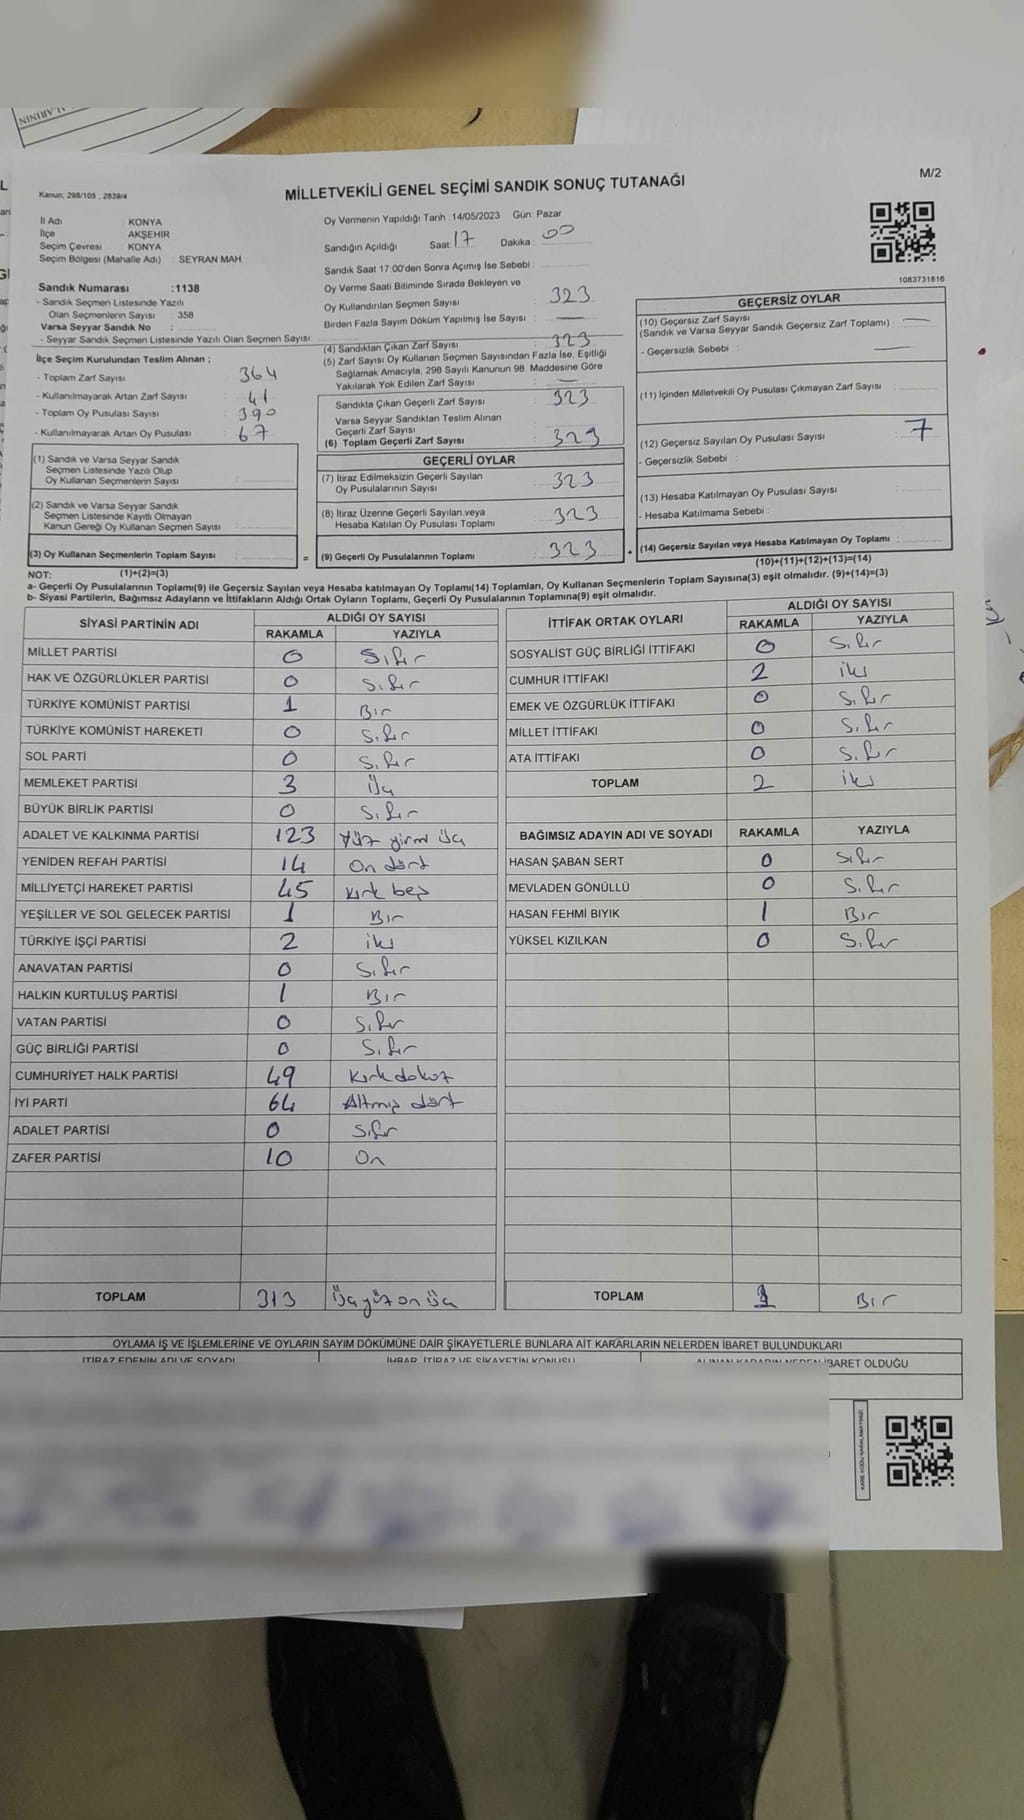 M/2
Kanun: 298/105 , 2839/4
MİLLETVEKİLİ GENEL SEÇİMİ SANDIK SONUÇ TUTANAĞI
İl Adı KONYA
İlçe AKŞEHİR
Seçim Çevresi : KONYA
Seçim Bölgesi (Mahalle Adı) : SEYRAN MAH
Sandık Numarası :1138
- Sandık Seçmen Listesinde Yazılı
Olan Seçmenlerin Sayısı : 358
Varsa Seyyar Sandık No :
- Seyyar Sandık Seçmen Listesinde Yazılı Olan Seçmen Sayısı :
İlçe Seçim Kurulundan Teslim Alınan ;
- Toplam Zarf Sayısı 364
- Kullanılmayarak Artan Zarf Sayısı : 41
- Toplam Oy Pusulası Sayısı : 390
- Kullanılmayarak Artan Oy Pusulası : 67
(1) Sandık ve Varsa Seyyar Sandık
Seçmen Listesinde Yazılı Olup
Oy Kullanan Seçmenlerin Sayısı :
(2) Sandık ve Varsa Seyyar Sandık
Seçmen Listesinde Kayıtlı Olmayan
Kanun Gereği Oy Kullanan Seçmen Sayısı :
(3) Oy Kullanan Seçmenlerin Toplam Sayısı :
(1)+(2)=(3)
Oy Vermenin Yapıldığı Tarih :14/05/2023 Gün: Pazar
Sandığın Açıldığı Saat: 17 Dakika : 00
Sandık Saat 17:00'den Sonra Açımış İse Sebebi :
Oy Verme Saati Bitiminde Sırada Bekleyen ve
Oy Kullandırılan Seçmen Sayısı : 323
Birden Fazla Sayım Döküm Yapılmış İse Sayısı :
(4) Sandıktan Çıkan Zarf Sayısı : 323
(5) Zarf Sayısı Oy Kullanan Seçmen Sayısından Fazla İse, Eşitliği
Sağlamak Amacıyla, 298 Sayılı Kanunun 98. Maddesine Göre
Yakılarak Yok Edilen Zarf Sayısı :
Sandıkta Çıkan Geçerli Zarf Sayısı : 323
Varsa Seyyar Sandıktan Teslim Alınan
Geçerli Zarf Sayısı :
(6) Toplam Geçerli Zarf Sayısı : 323
GEÇERLİ OYLAR
(7) İtiraz Edilmeksizin Geçerli Sayılan
Oy Pusulalarının Sayısı : 323
(8) İtiraz Üzerine Geçerli Sayılan veya
Hesaba Katılan Oy Pusulası Toplamı : 323
= (9) Geçerli Oy Pusulalarının Toplamı : 323 +
1083731616
GEÇERSİZ OYLAR
(10) Geçersiz Zarf Sayısı
(Sandık ve Varsa Seyyar Sandık Geçersiz Zarf Toplamı) :
- Geçersizlik Sebebi :
(11) İçinden Milletvekili Oy Pusulası Çıkmayan Zarf Sayısı :
(12) Geçersiz Sayılan Oy Pusulası Sayısı : 7
- Geçersizlik Sebebi :
(13) Hesaba Katılmayan Oy Pusulası Sayısı :
- Hesaba Katılmama Sebebi :
(14) Geçersiz Sayılan veya Hesaba Katılmayan Oy Toplamı :
(10)+(11)+(12)+(13)=(14)
NOT:
a- Geçerli Oy Pusulalarının Toplamı(9) ile Geçersiz Sayılan veya Hesaba katılmayan Oy Toplamı(14) Toplamları, Oy Kullanan Seçmenlerin Toplam Sayısına(3) eşit olmalıdır. (9)+(14)=(3)
b- Siyasi Partilerin, Bağımsız Adayların ve İttifakların Aldığı Ortak Oyların Toplamı, Geçerli Oy Pusulalarının Toplamına(9) eşit olmalıdır.
SİYASİ PARTİNİN ADI ALDIĞI OY SAYISI
RAKAMLA YAZIYLA
MİLLET PARTİSİ 0 Sıfır
HAK VE ÖZGÜRLÜKLER PARTİSİ 0 Sıfır
TÜRKİYE KOMÜNİST PARTİSİ 1 Bir
TÜRKİYE KOMÜNİST HAREKETİ 0 Sıfır
SOL PARTİ 0 Sıfır
MEMLEKET PARTİSİ 3 Üç
BÜYÜK BİRLİK PARTİSİ 0 Sıfır
ADALET VE KALKINMA PARTİSİ 123 Yüz yirmi üç
YENİDEN REFAH PARTİSİ 14 On dört
MİLLİYETÇİ HAREKET PARTİSİ 45 Kırk beş
YEŞİLLER VE SOL GELECEK PARTİSİ 1 Bir
TÜRKİYE İŞÇİ PARTİSİ 2 iki
ANAVATAN PARTİSİ 0 Sıfır
HALKIN KURTULUŞ PARTİSİ 1 Bir
VATAN PARTİSİ 0 Sıfır
GÜÇ BİRLİĞİ PARTİSİ 0 Sıfır
CUMHURİYET HALK PARTİSİ 49 Kırkdokuz
İYİ PARTİ 64 Altmış dört
ADALET PARTİSİ 0 Sıfır
ZAFER PARTİSİ 10 On
TOPLAM 313 Üçyüz on üç
İTTİFAK ORTAK OYLARI ALDIĞI OY SAYISI
RAKAMLA YAZIYLA
SOSYALİST GÜÇ BİRLİĞİ İTTİFAKI 0 Sıfır
CUMHUR İTTİFAKI 2 iki
EMEK VE ÖZGÜRLÜK İTTİFAKI 0 Sıfır
MİLLET İTTİFAKI 0 Sıfır
ATA İTTİFAKI 0 Sıfır
TOPLAM 2 iki
BAĞIMSIZ ADAYIN ADI VE SOYADI RAKAMLA YAZIYLA
HASAN ŞABAN SERT 0 Sıfır
MEVLADEN GÖNÜLLÜ 0 Sıfır
HASAN FEHMİ BIYIK 1 Bir
YÜKSEL KIZILKAN 0 Sıfır
TOPLAM 1 Bir
OYLAMA İŞ VE İŞLEMLERİNE VE OYLARIN SAYIM DÖKÜMÜNE DAİR ŞİKAYETLERLE BUNLARA AİT KARARLARIN NELERDEN İBARET BULUNDUKLARI
İTİRAZ EDENİN ADI VE SOYADI İHBAR, İTİRAZ VE ŞİKAYETİN KONUSU ALINAN KARARIN NEDEN İBARET OLDUĞU
KARE KODU KARALAMAYINIZ!